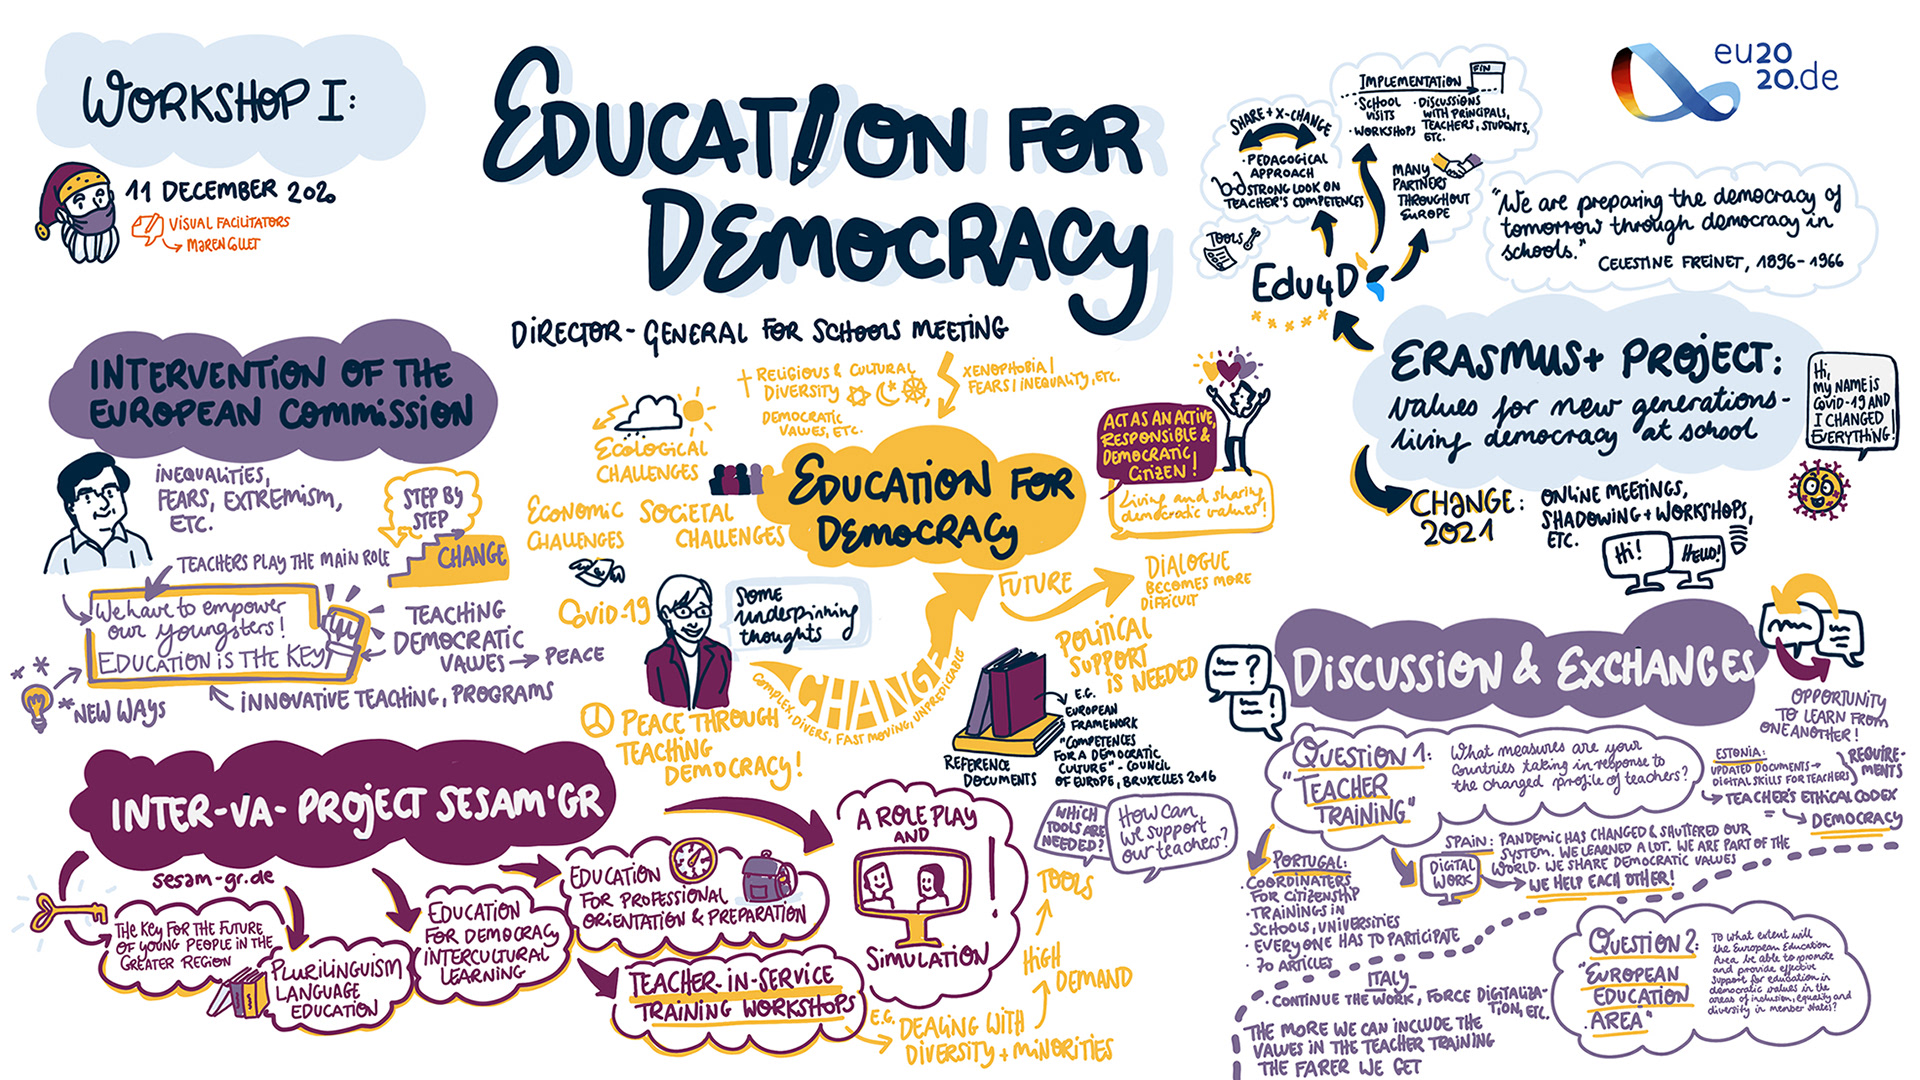 WORKSHOP I:
11 DECEMBER 2020
VISUAL FACILITATORS
MAREN GILET
EDUCATION FOR
DEMOCRACY
DIRECTOR-GENERAL FOR SCHOOLS MEETING
eu20
20.de
IMPLEMENTATION
FIN
· SCHOOL
VISITS
· WORKSHOPS
· DISCUSSIONS
WITH PRINCIPALS,
TEACHERS, STUDENTS,
ETC.
SHARE + X-CHANGE
· PEDAGOGICAL
APPROACH
STRONG LOOK ON
TEACHER'S COMPETENCES
MANY
PARTNERS
THROUGHOUT
EUROPE
TOOLS
Edu4D
"We are preparing the democracy of
tomorrow through democracy in
schools."
CELESTINE FREINET, 1896-1966
ERASMUS+ PROJECT:
values for new generations-
living democracy at school
Hi,
MY NAME IS
COVID-19 AND
I CHANGED
EVERYTHING!
CHANGE:
2021
ONLINE MEETINGS,
SHADOWING + WORKSHOPS,
ETC.
Hi!
HELLO!
INTERVENTION OF THE
EUROPEAN COMMISSION
INEQUALITIES,
FEARS, EXTREMISM,
ETC.
STEP BY
STEP
CHANGE
TEACHERS PLAY THE MAIN ROLE
We have to empower
our youngsters!
EDUCATION IS THE KEY!
TEACHING
DEMOCRATIC
VALUES → PEACE
NEW WAYS
INNOVATIVE TEACHING, PROGRAMS
RELIGIOUS & CULTURAL
DIVERSITY
DEMOCRATIC
VALUES, ETC.
XENOPHOBIA /
FEARS / INEQUALITY, ETC.
ECOLOGICAL
CHALLENGES
ECONOMIC
CHALLENGES
SOCIETAL
CHALLENGES
COVID-19
EDUCATION FOR
DEMOCRACY
ACT AS AN ACTIVE,
RESPONSIBLE &
DEMOCRATIC
CITIZEN!
Living and sharing
democratic values!
SOME
underpinning
thoughts
CHANGE
COMPLEX, DIVERS, FAST MOVING, UNPREDICTABLE
FUTURE
DIALOGUE
BECOMES MORE
DIFFICULT
POLITICAL
SUPPORT
IS NEEDED
PEACE THROUGH
TEACHING
DEMOCRACY!
REFERENCE
DOCUMENTS
E.G.
EUROPEAN
FRAMEWORK
"COMPETENCES
FOR A DEMOCRATIC
CULTURE" - COUNCIL
OF EUROPE, BRUXELLES 2016
INTER-VA-PROJECT SESAM'GR
sesam-gr.de
THE KEY FOR THE FUTURE
OF YOUNG PEOPLE IN THE
GREATER REGION
PLURILINGUISM
LANGUAGE
EDUCATION
EDUCATION
FOR DEMOCRACY
INTERCULTURAL
LEARNING
EDUCATION
FOR PROFESSIONAL
ORIENTATION & PREPARATION
TEACHER-IN-SERVICE
TRAINING WORKSHOPS
A ROLE PLAY
AND
SIMULATION
!
E.G. DEALING WITH
DIVERSITY + MINORITIES
HIGH
DEMAND
TOOLS
WHICH
TOOLS ARE
NEEDED?
How can
we support
our teachers?
DISCUSSION & EXCHANGES
?
!
OPPORTUNITY
TO LEARN FROM
ONE ANOTHER!
QUESTION 1:
"TEACHER
TRAINING"
What measures are your
countries taking in response to
the changed profile of teachers?
ESTONIA:
UPDATED DOCUMENTS →
DIGITAL SKILLS FOR TEACHERS
REQUIRE-
MENTS
→ TEACHER'S ETHICAL CODEX
→ DEMOCRACY
PORTUGAL:
· COORDINATERS
FOR CITIZENSHIP
· TRAININGS IN
SCHOOLS, UNIVERSITIES
· EVERYONE HAS TO PARTICIPATE
· 70 ARTICLES
DIGITAL
WORK
SPAIN: PANDEMIC HAS CHANGED & SHUTTERED OUR
SYSTEM. WE LEARNED A LOT. WE ARE PART OF THE
WORLD. WE SHARE DEMOCRATIC VALUES
→ WE HELP EACH OTHER!
ITALY
· CONTINUE THE WORK, FORCE DIGITALIZA-
TION, ETC.
THE MORE WE CAN INCLUDE THE
VALUES IN THE TEACHER TRAINING
THE FARER WE GET
QUESTION 2:
"EUROPEAN
EDUCATION
AREA"
To what extent will
the European Education
Area be able to promote
and provide effective
support for education in
democratic values in the
areas of inclusion, equality and
diversity in member states?